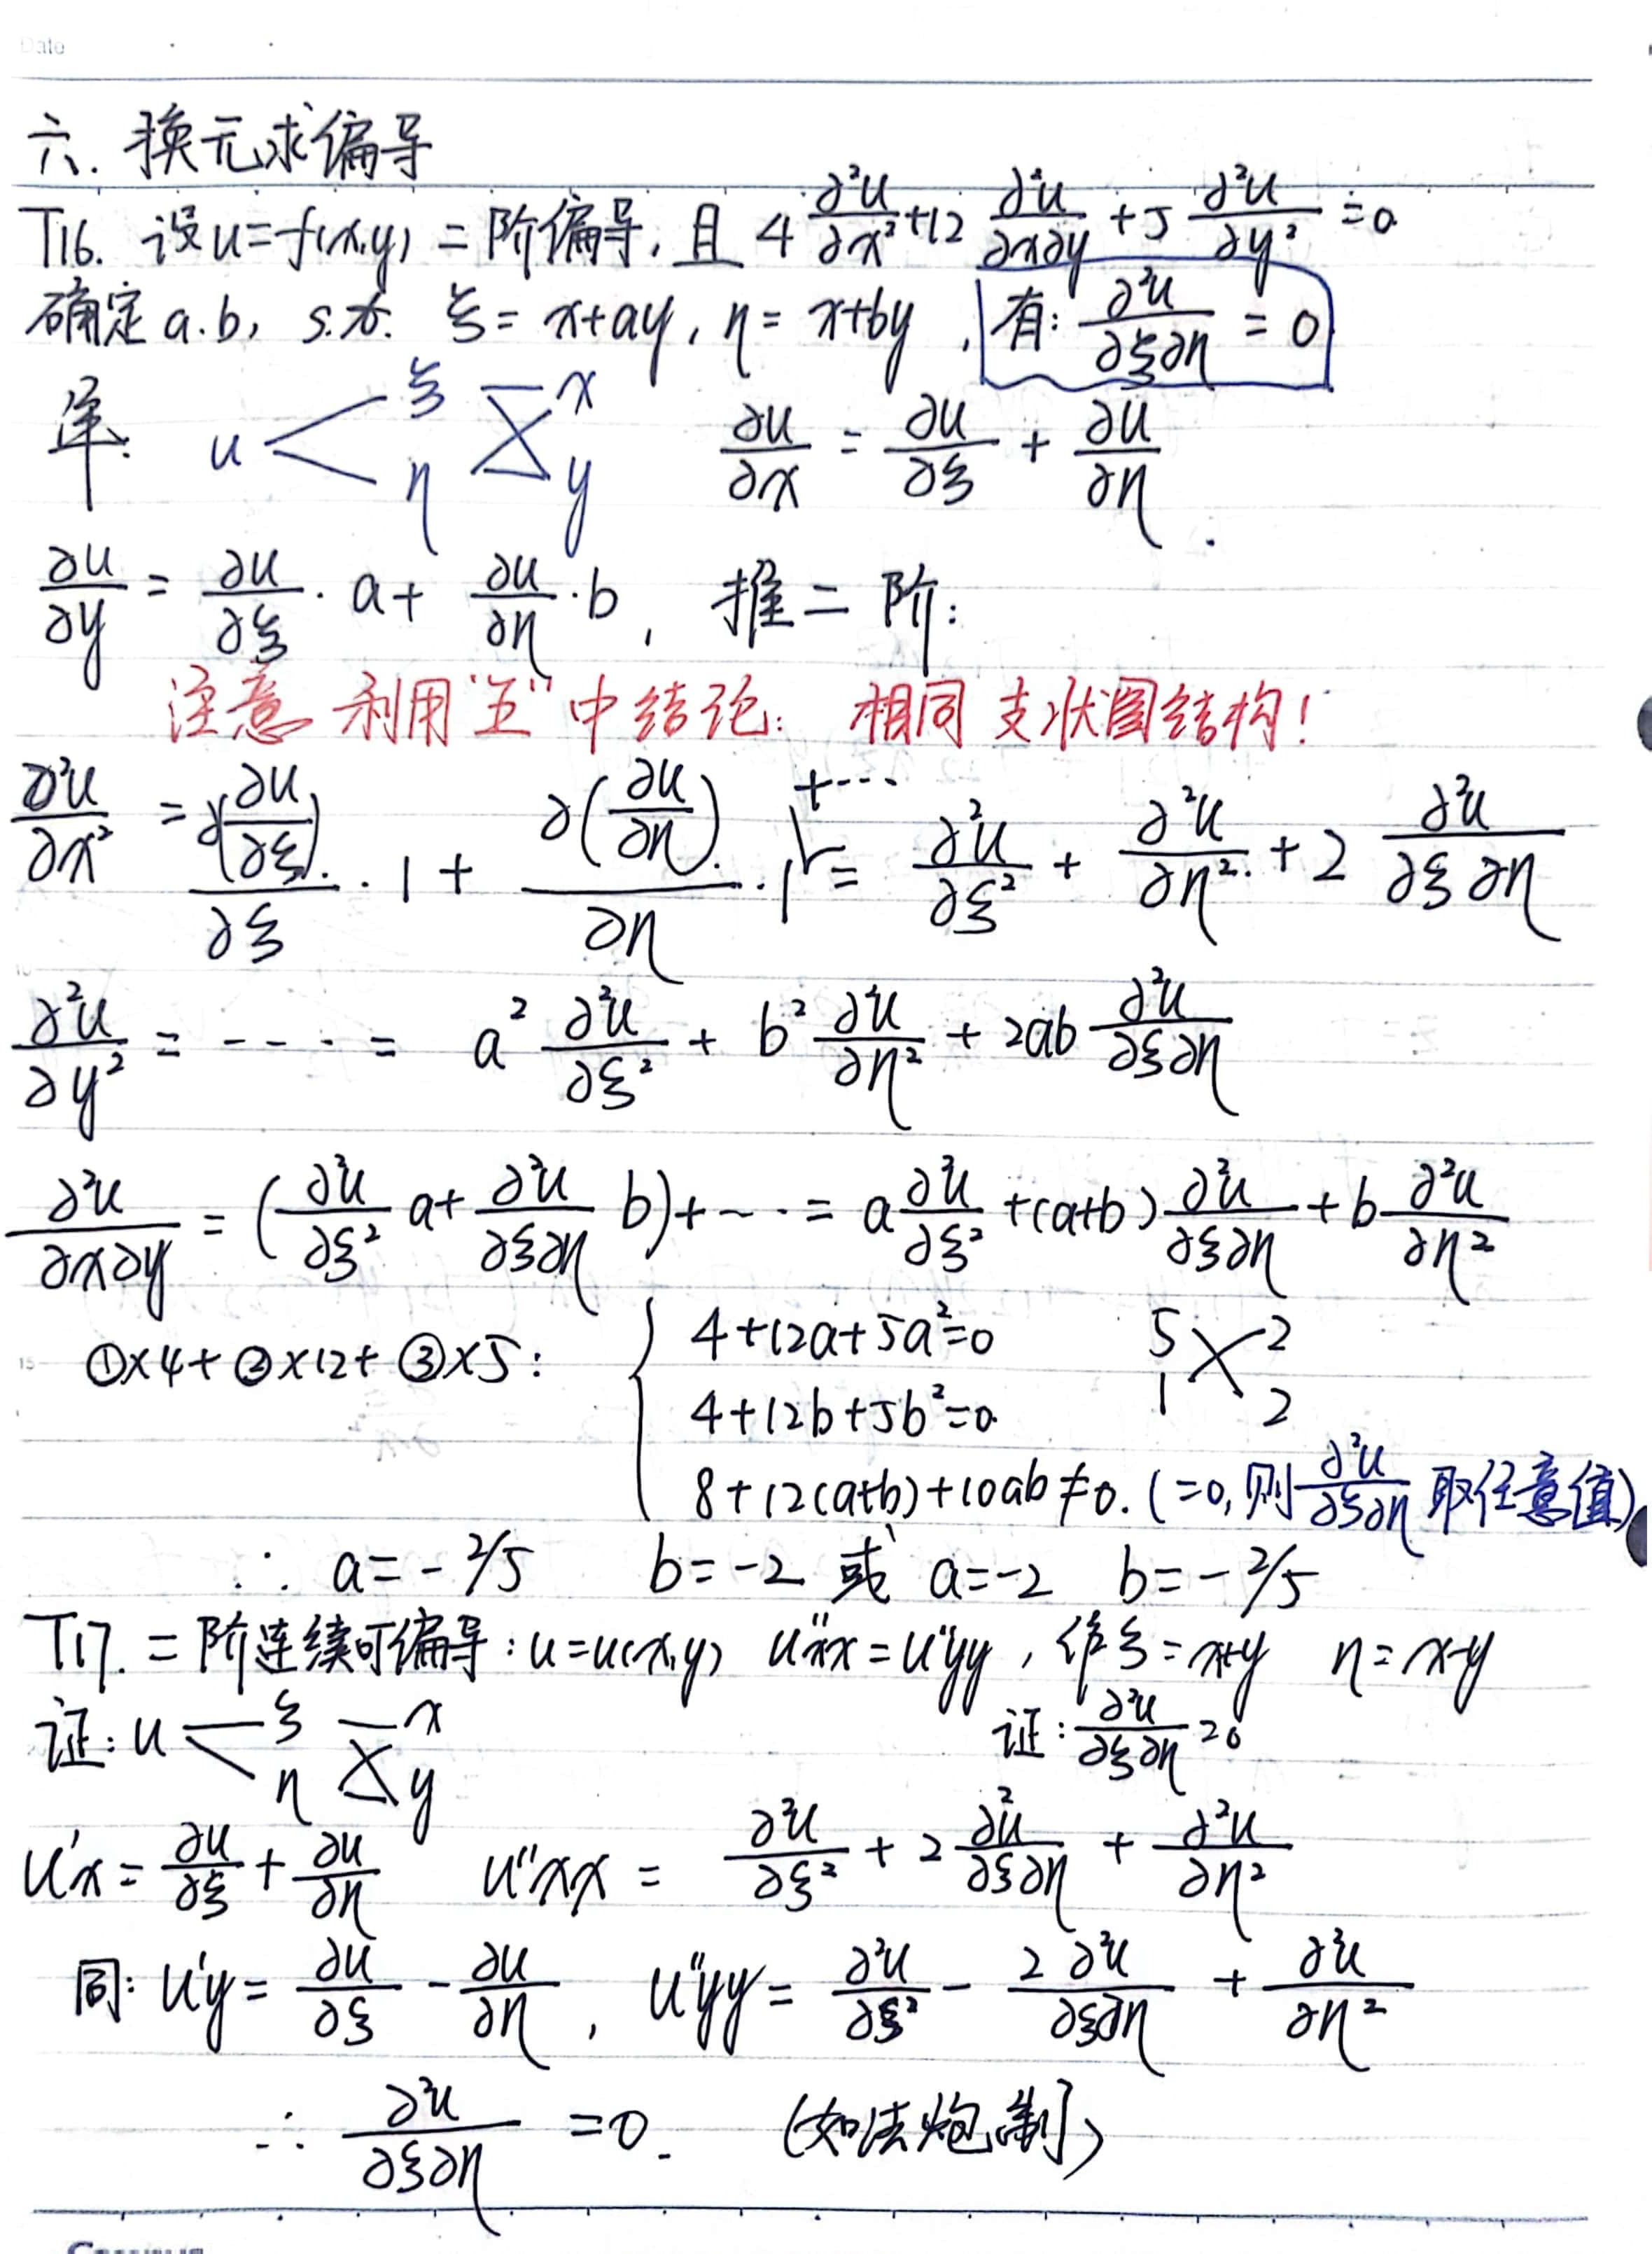 Date
六. 换元求偏导
T16. 设u=f(x,y) 二阶偏导, 且 4 ∂²u/∂x² + 12 ∂²u/∂x∂y + 5 ∂²u/∂y² = 0.
确定 a.b, s.t. ξ = x+ay, η = x+by, 有: ∂²u/∂ξ∂η = 0
u ξ η x y ∂u/∂x = ∂u/∂ξ + ∂u/∂η.
∂u/∂y = ∂u/∂ξ · a + ∂u/∂η · b, 推二阶:
注意 利用"五"中结论: 相同 支状图结构!
∂²u/∂x² = ∂(∂u/∂ξ)/∂ξ · 1 + ∂(∂u/∂η)/∂η · 1 + ··· = ∂²u/∂ξ² + ∂²u/∂η² + 2 ∂²u/∂ξ∂η
∂²u/∂y² = ---- = a² ∂²u/∂ξ² + b² ∂²u/∂η² + 2ab ∂²u/∂ξ∂η
∂²u/∂x∂y = (∂²u/∂ξ² a + ∂²u/∂ξ∂η b) + ··· = a ∂²u/∂ξ² + (a+b) ∂²u/∂ξ∂η + b ∂²u/∂η²
①×4 + ②×12 + ③×5:
4+12a+5a²=0 5 2
4+12b+5b²=0. 1 2
8+12(a+b)+10ab≠0. (=0, 则 ∂²u/∂ξ∂η 取任意值)
∴ a=-2/5 b=-2 或 a=-2 b=-2/5
T17. 二阶连续可偏导: u=u(x,y) u''xx = u''yy, 作ξ=x+y η=x-y
证: u ξ η x y 证: ∂²u/∂ξ∂η=0
u'x = ∂u/∂ξ + ∂u/∂η u''xx = ∂²u/∂ξ² + 2 ∂²u/∂ξ∂η + ∂²u/∂η²
同: u'y = ∂u/∂ξ - ∂u/∂η, u''yy = ∂²u/∂ξ² - 2∂²u/∂ξ∂η + ∂²u/∂η²
∴ ∂²u/∂ξ∂η = 0. (如法炮制)